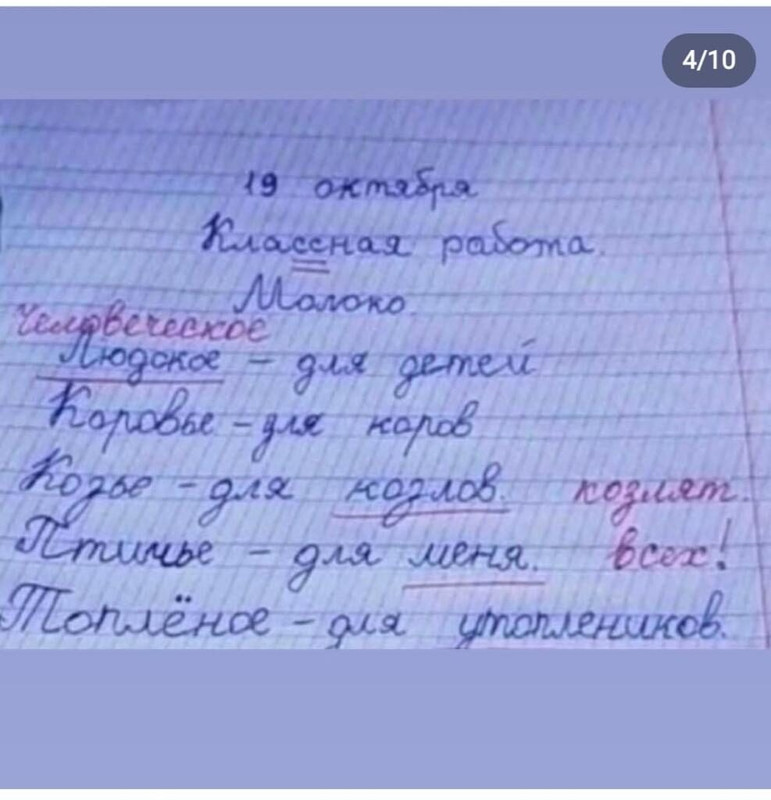 4/10
19 октября
Классная работа.
Молоко
человеческое
Людское – для детей
Коровье – для коров
Козье – для козлов. козлят.
Птичье – для меня. всех!
Топлёное – для утоплеников.